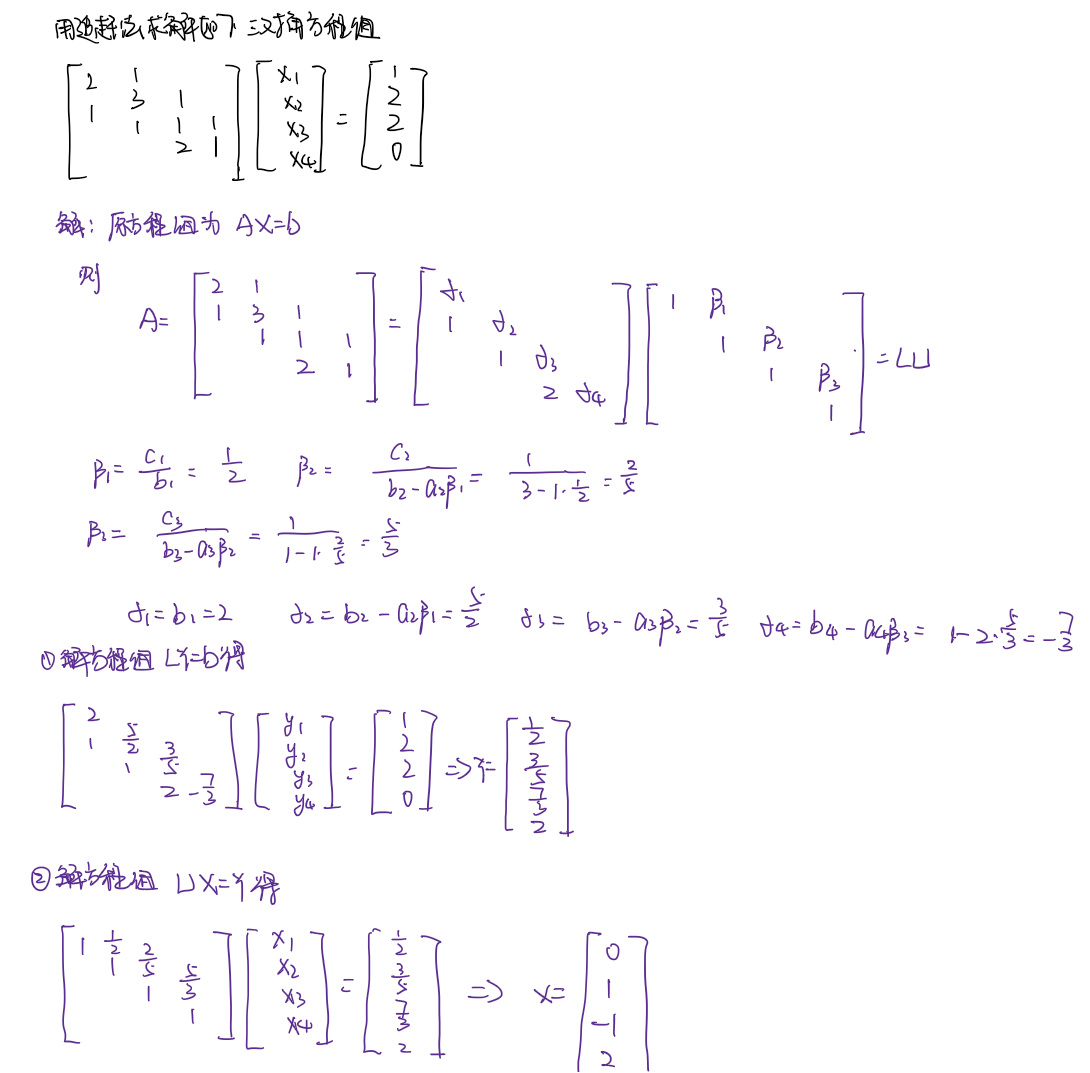 用追赶法求解如下三对角方程组
[2 1; 1 3 1; 1 1 1; 2 1] [x1; x2; x3; x4] = [1; 2; 2; 0]
解: 原方程组为 AX=b
则
A= [2 1; 1 3 1; 1 1 1; 2 1] = [α1; 1 α2; 1 α3; 2 α4] [1 β1; 1 β2; 1 β3; 1] = LU
β1= c1/b1 = 1/2 β2= c2/(b2-a2β1) = 1/(3-1·1/2) = 2/5
β3= c3/(b3-a3β2) = 1/(1-1·2/5) = 5/3
α1=b1=2 α2=b2-a2β1=5/2 α3= b3-a3β2=3/5 α4=b4-a4β3= 1-2·5/3=-7/3
①解方程组 LY=b得
[2; 1 5/2; 1 3/5; 2 -7/3] [y1; y2; y3; y4] = [1; 2; 2; 0] => Y= [1/2; 3/5; 7/3; 2]
②解方程组 UX=Y得
[1 1/2; 1 2/5; 1 5/3; 1] [x1; x2; x3; x4] = [1/2; 3/5; 7/3; 2] => x= [0; 1; -1; 2]